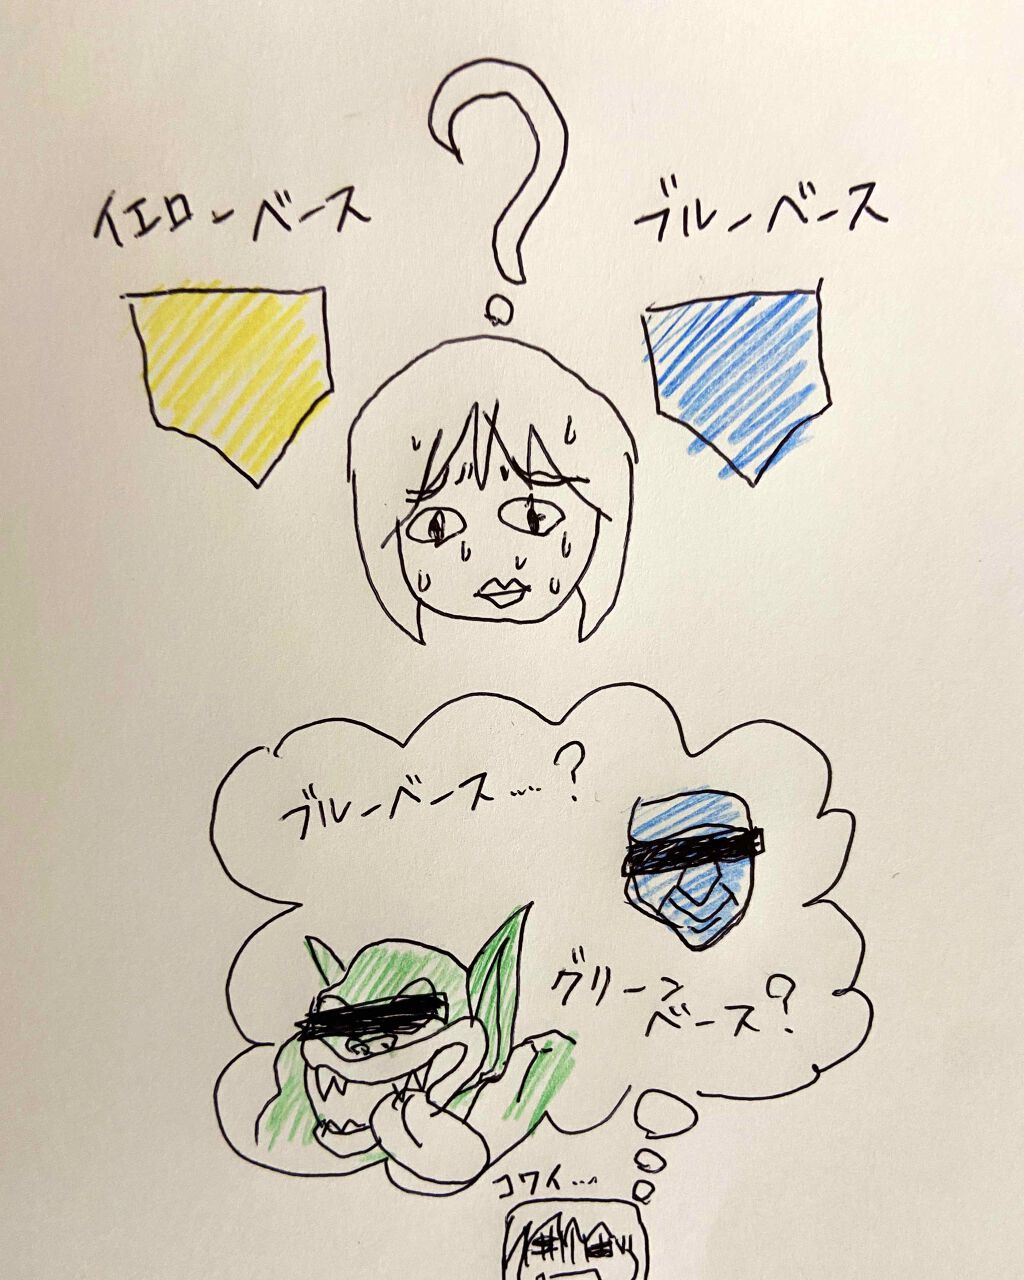 ?
イエローベース
ブルーベース
ブルーベース....?
グリーン
ベース?
コワイ...